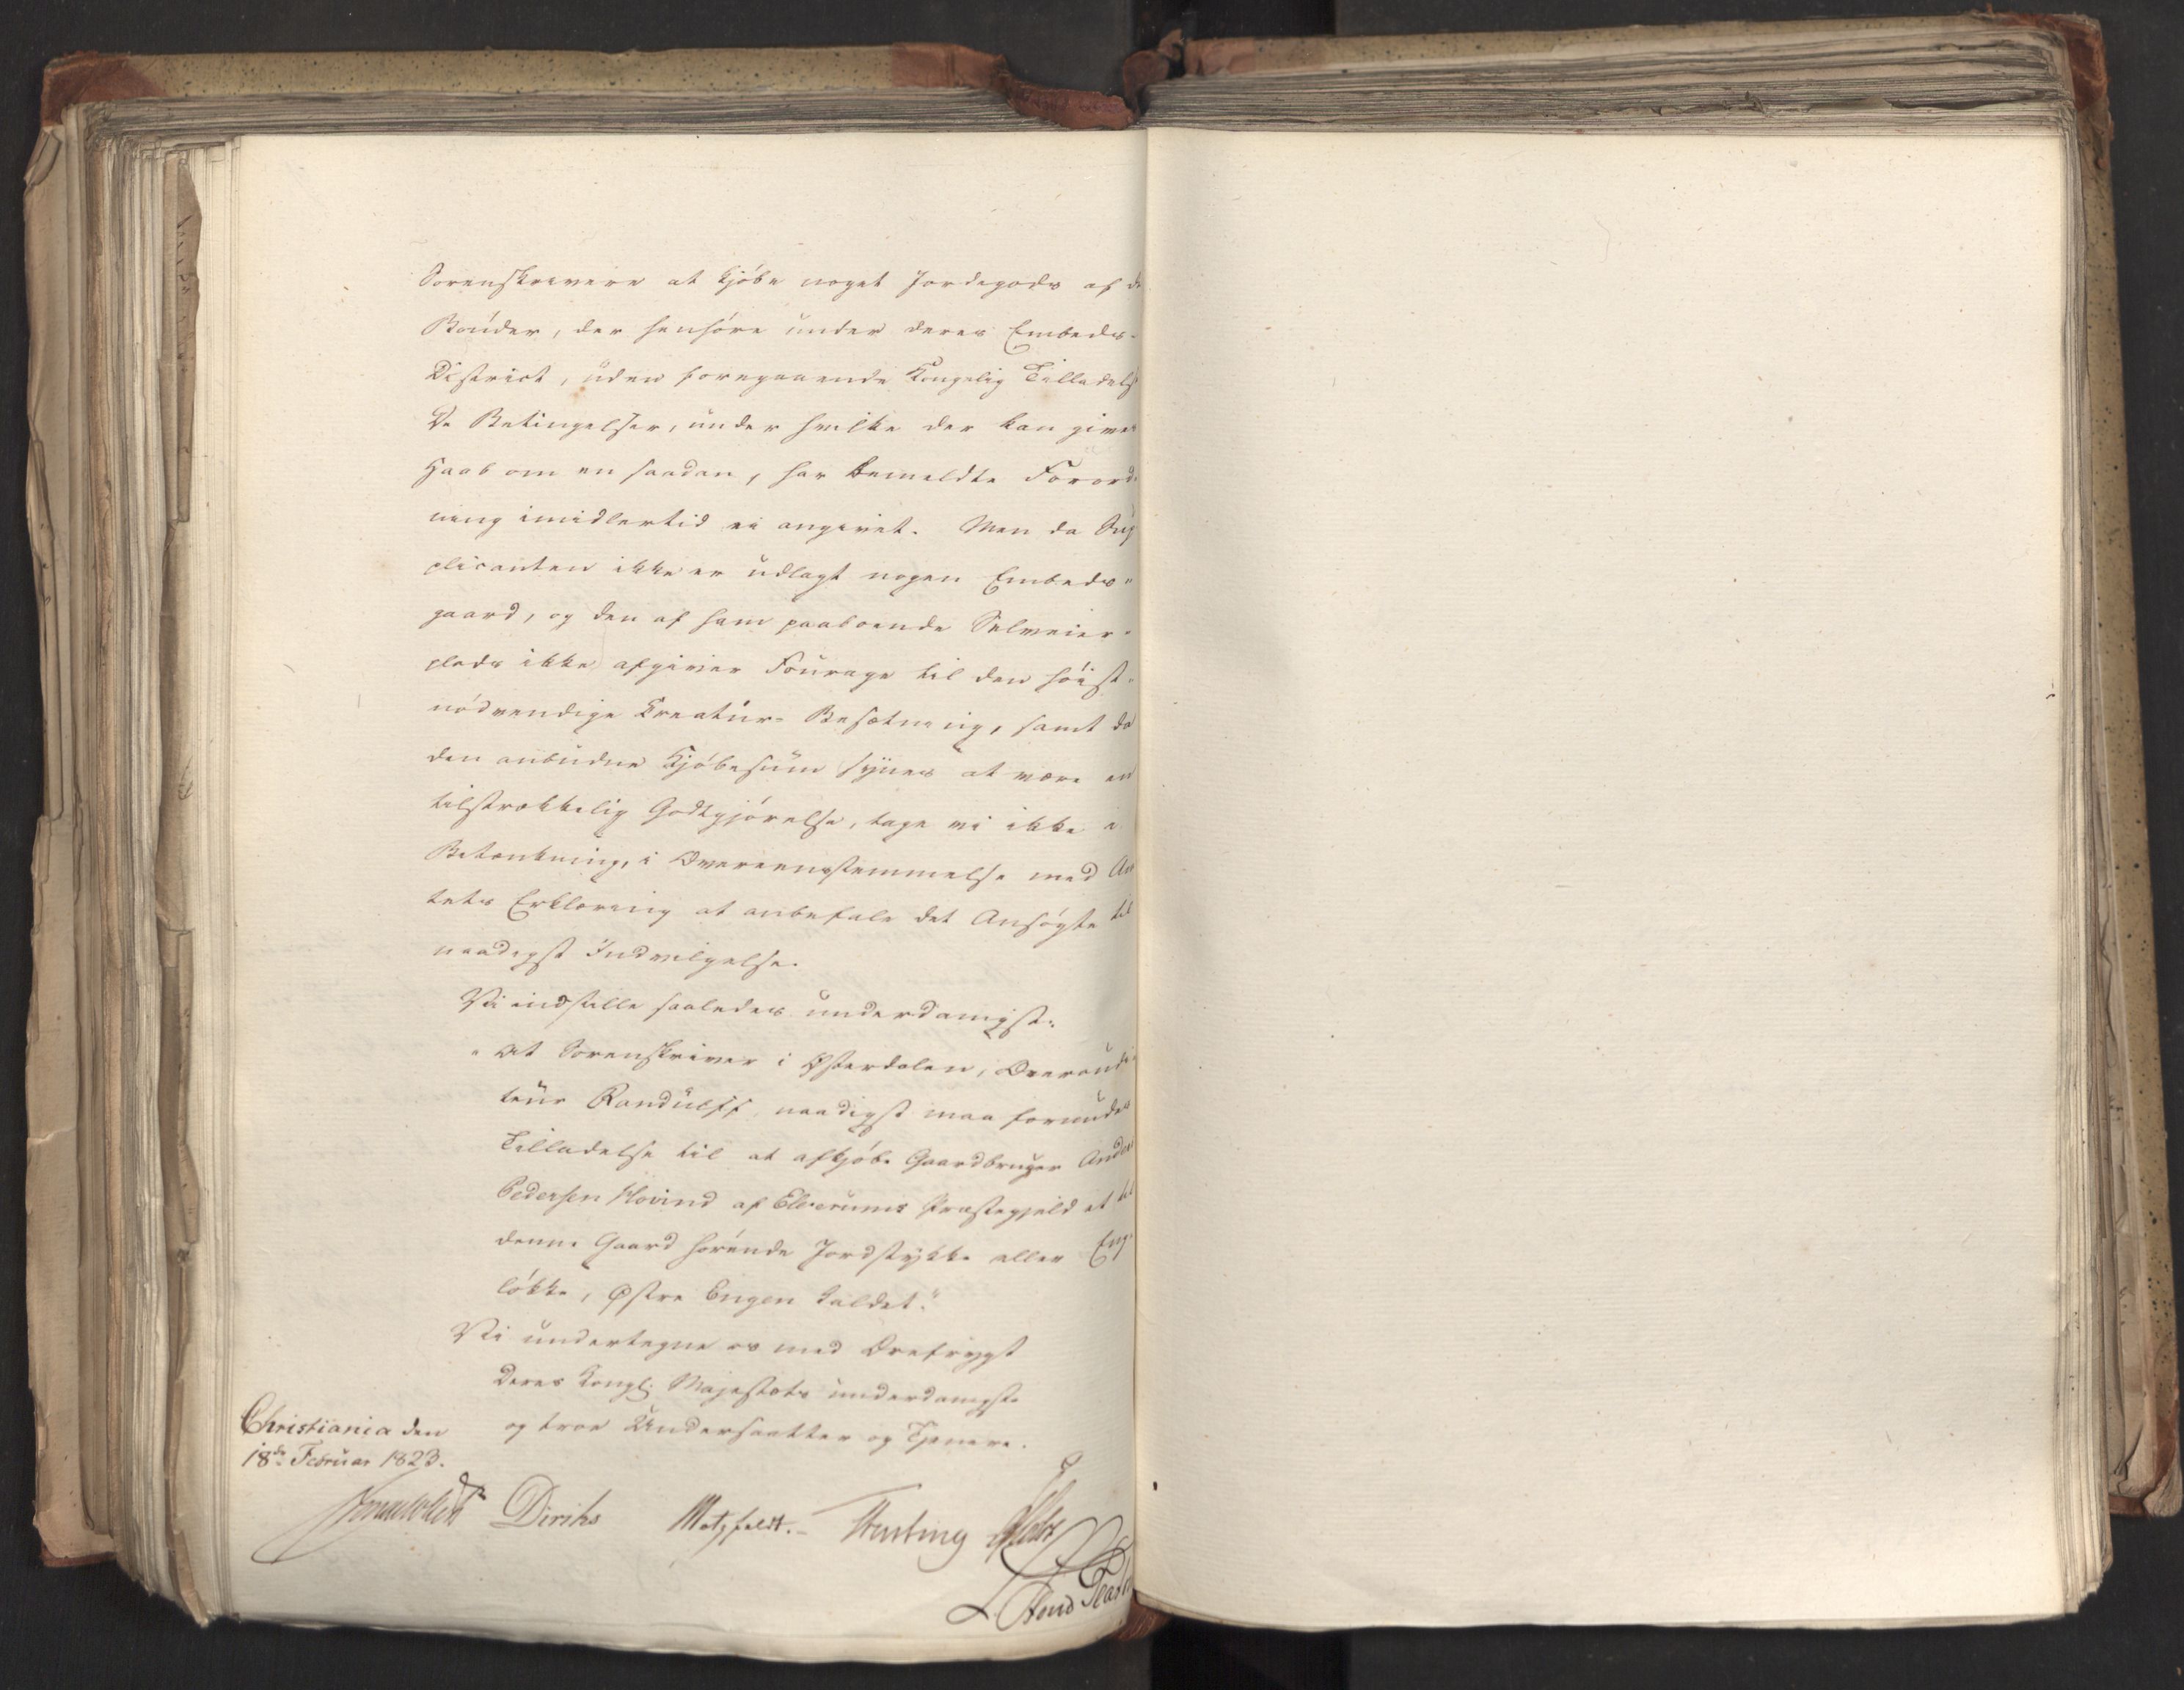 Sorenskrivere at kjöbe noget Jordegods af de
Bönder, der henhöre under deres Embeds-
District, uden foregaaende Kongelig Tilladelse
De Betingelser, under hvilke der kan gives
Haab om en saadan, har bemeldte Forord-
ning imidlertid ei angivet. Men da Sup
plicanten ikke er udlagt nogen Embeds-
gaard, og den af ham paaboende Selveier-
plads ikke afgiver Fourage til den höist-
nödvendige Creatur-Besætning, samt da
den anbudne Kjöbesum synes at være en
tilstrækkelig Godtgjörelse, tage vi ikke i
Betænkning, i Overeensstemmelse med Am
tets Erklæring at anbefale det Ansögte til
naadigst Indvilgelse.
Vi indstille saaledes underdanigst:
"At Sorenskriver i Østerdalen, Overaudi
teur Randulff naadigst maa forundes
Tilladelse til at afkjöbe Gaardbruger Anders
Pedersen Hovind af Elverums Præstegjeld et til
denne Gaard hörende Jordstykke eller Eng-
lökke, Østre Engen kaldet."
Vi undertegne os med Ærefrygt
Deres Kongl: Majestæts underdanigste
og troe Undersaatter og Tjenere.
Christiania den
18de Februar 1823.
Diriks Motzfeldt. Krebs